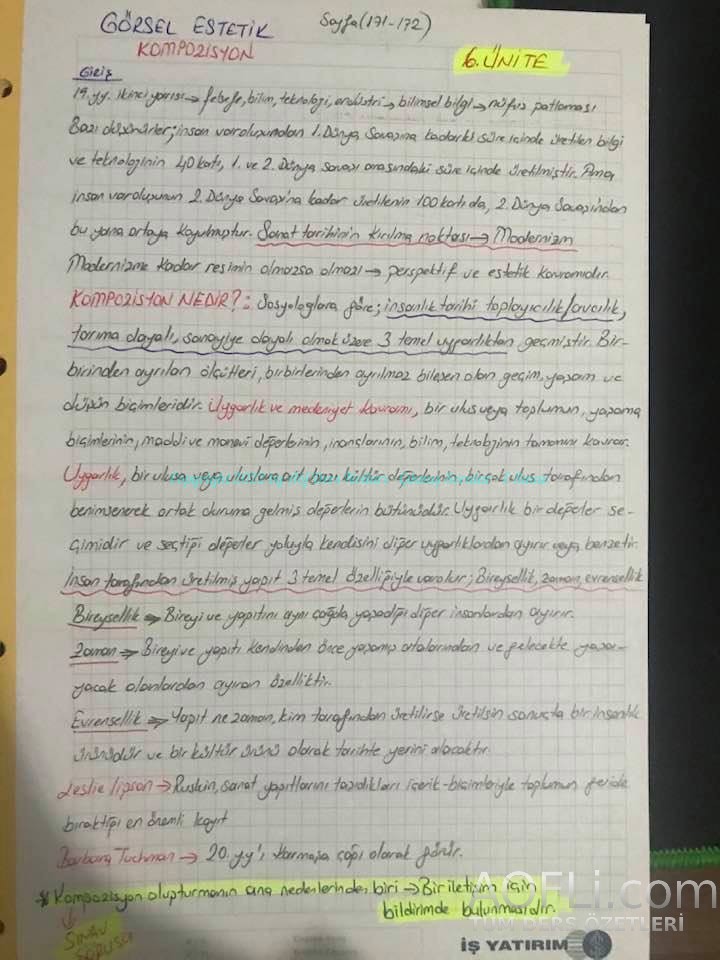 GÖRSEL ESTETİK Sayfa (171-172)
KOMPOZİSYON 6. ÜNİTE
GİRİŞ
19. yy. ikinci yarısı → felsefe, bilim, teknoloji, endüstri → bilimsel bilgi → nüfus patlaması
Bazı düşünürler; insan varoluşundan 1. Dünya Savaşına kadarki süre içinde üretilen bilgi
ve teknolojinin 40 katı, 1. ve 2. Dünya savaşı arasındaki süre içinde üretilmiştir. Ama
insan varoluşunun 2. Dünya Savaşı'na kadar üretilenin 100 katı da, 2. Dünya Savaşından
bu yana ortaya koyulmuştur. Sanat tarihinin kırılma noktası → Modernizm
Modernizme kadar resimin olmazsa olmazı → perspektif ve estetik kavramıdır.
KOMPOZİSYON NEDİR?: Sosyologlara göre; insanlık tarihi toplayıcılık/avcılık,
tarıma dayalı, sanayiye dayalı olmak üzere 3 temel uygarlıktan geçmiştir. Bir-
birinden ayrılan ölçütleri, birbirlerinden ayrılmaz bileşen olan geçim, yaşam ve
düşün biçimleridir. Uygarlık ve medeniyet kavramı, bir ulus veya toplumun, yaşama
biçimlerinin, maddi ve manevi değerlerinin, inançlarının, bilim, teknolojinin tamamını kavrar.
Uygarlık, bir ulusa veya uluslara ait bazı kültür değerlerinin birçok ulus tarafından
benimsenerek ortak duruma gelmiş değerlerin bütünüdür. Uygarlık bir değerler se-
çimidir ve seçtiği değerler yoluyla kendisini diğer uygarlıklardan ayırır veya benzetir.
İnsan tarafından üretilmiş yapıt 3 temel özelliğiyle varolur; Bireysellik, zaman, evrensellik
Bireysellik ⇒ Bireyi ve yapıtını aynı çağda yaşadığı diğer insanlardan ayırır.
Zaman ⇒ Bireyi ve yapıtı kendinden önce yaşamış ortalarından ve gelecekte yaşa-
yacak olanlardan ayıran özelliktir.
Evrensellik ⇒ Yapıt ne zaman, kim tarafından üretilirse üretilsin sonuçta bir insanlık
ürünüdür ve bir kültür ürünü olarak tarihte yerini alacaktır.
Leslie Lipson → Ruskin, sanat yapıtlarını taşıdıkları içerik-biçimleriyle toplumun geride
bıraktığı en önemli kayıt
Barbara Tuchman → 20. yy'ı karmaşa çağı olarak görür.
* Kompozisyon oluşturmanın ana nedenlerinden biri → Bir iletişim için
bildirimde bulunmasıdır.
SINAV
SORUSU
AOFLi.com
TÜM DERS ÖZETLERİ
İŞ YATIRIM